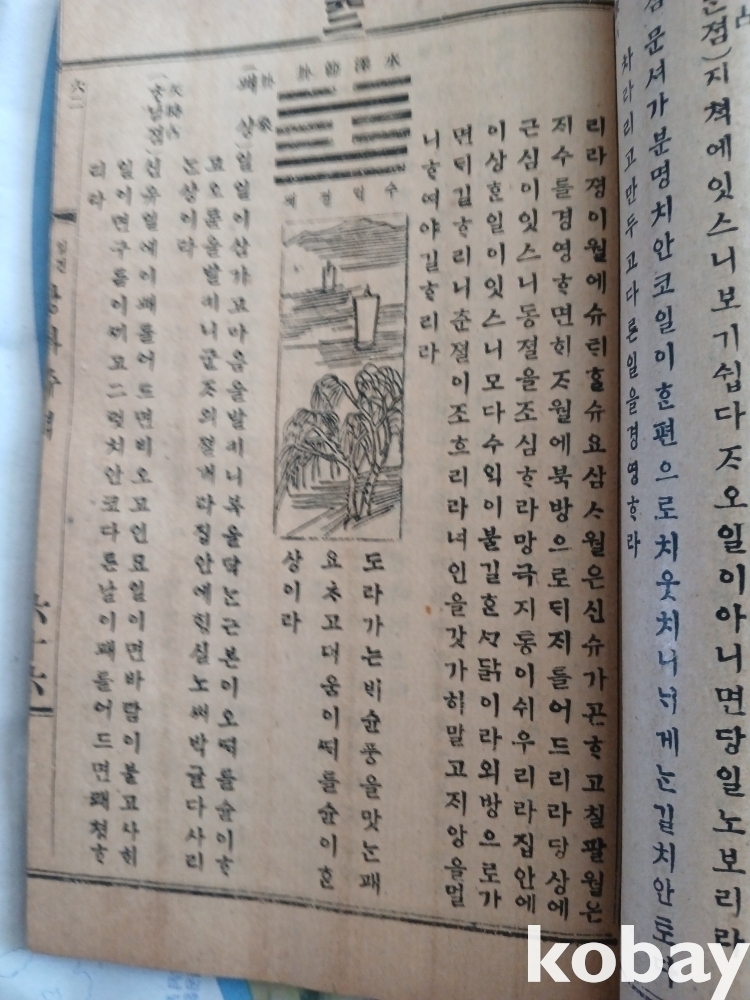 졈)지쳑에잇스니보기쉽다ᄌᆞ오일이아니면당일노보리라
문셔가분명치안코일이ᄒᆞᆫ편으로치웃치니너게ᄂᆞᆫ길치안토
차라리고만두고다른일을경영ᄒᆞ라
리라졍이월에슈ᄐᆡᄒᆞᆯ슈요삼ᄉᆞ월은신슈가곤ᄒᆞ고칠팔월은
ᄌᆡ수를경영ᄒᆞ면ᄒᆡᄌᆞ월에북방으로ᄃᆡᄌᆡ를어드리라당상에
근심이잇스니동졀을조심ᄒᆞ라망극지통이쉬우리라집안에
이상ᄒᆞᆫ일이잇스니모다수ᄋᆡᆨ이불길ᄒᆞᆫᄭᆞᄃᆞᆰ이라외방으로가
면ᄃᆡ길ᄒᆞ리니춘졀이조흐리라녀인을갓가히말고ᄌᆡ앙을멀
니ᄒᆞ여야길ᄒᆞ리라
水澤節卦
수ᄐᆡᆨ졀괘
도라가는ᄇᆡ슌풍을맛ᄂᆞᆫ괘
요ᄎᆞ고더움이ᄯᅢ를슌이ᄒᆞᆫ
상이라
卦象
(괘상)일일이삼가고마음을발키니복을닥ᄂᆞᆫ근본이오ᄯᅢ를슌이ᄒᆞ
고오륜을발키니군ᄌᆞ의졀개라집안에횡실노써다사리
는상이라
天時占
(ᄒᆞᄂᆞᆯ졈)신유일에이괘를어드면비오고인묘일이면바람이불고사ᄒᆡ
일이면구름이ᄭᅵ고그럿치안코다른날이괘를어드면쾌쳥ᄒᆞ
리라
六二
六十六
kobay